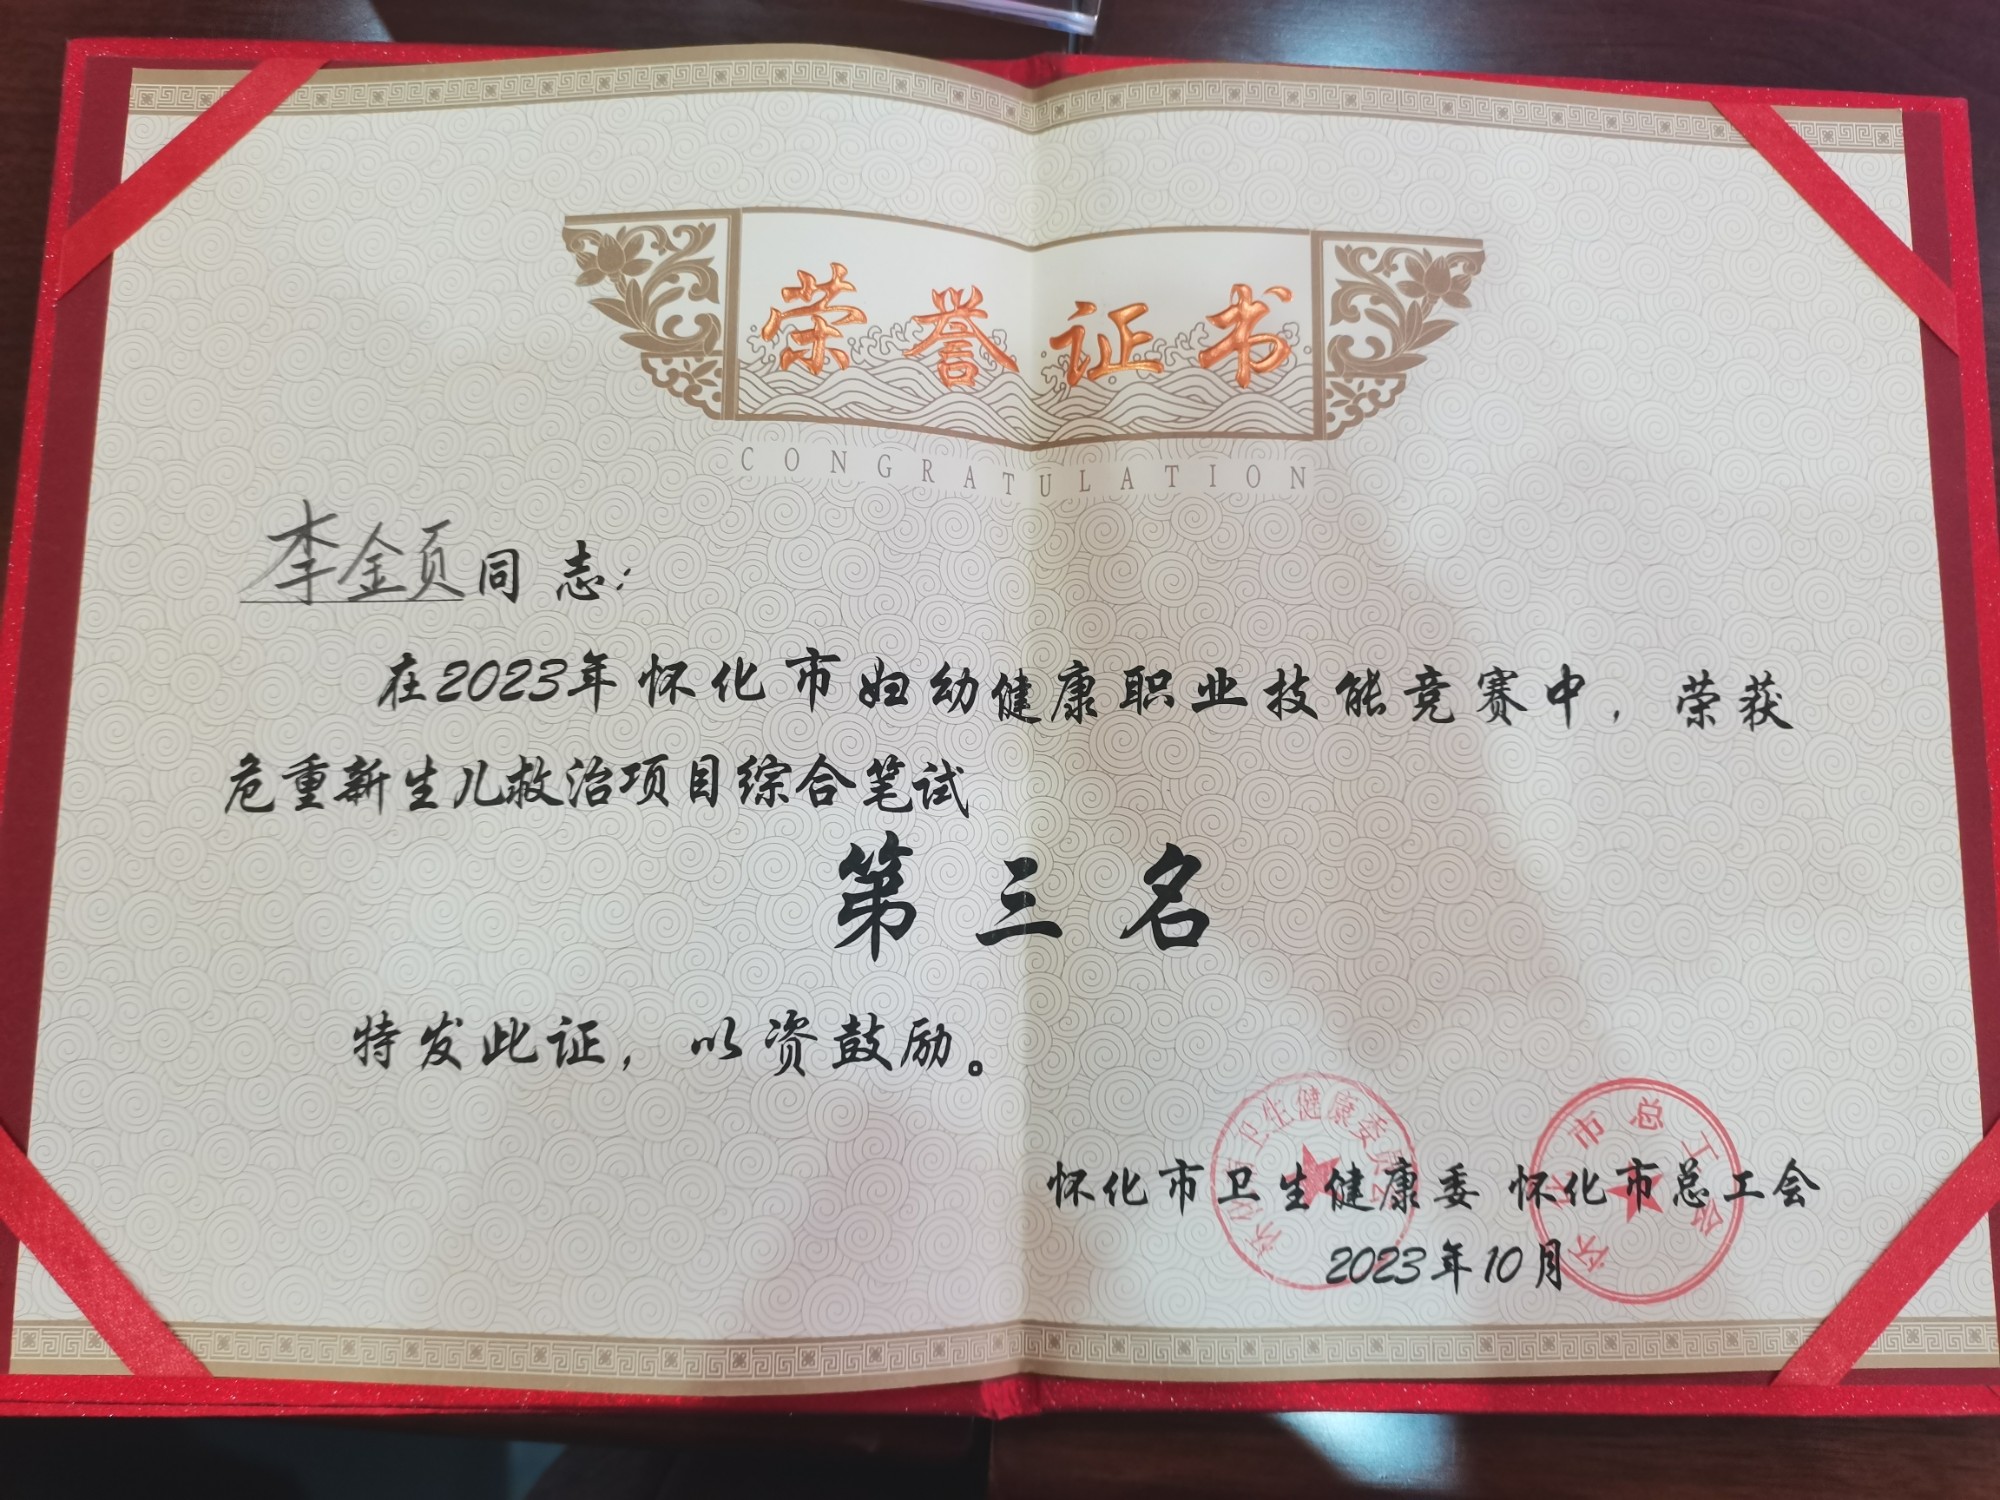 荣誉证书
CONGRATULATION
李金页同志：
在2023年怀化市妇幼健康职业技能竞赛中，荣获
危重新生儿救治项目综合笔试
第三名
特发此证，以资鼓励。
怀化市卫生健康委 怀化市总工会
2023年10月
怀化市卫生健康委员会
怀化市总工会